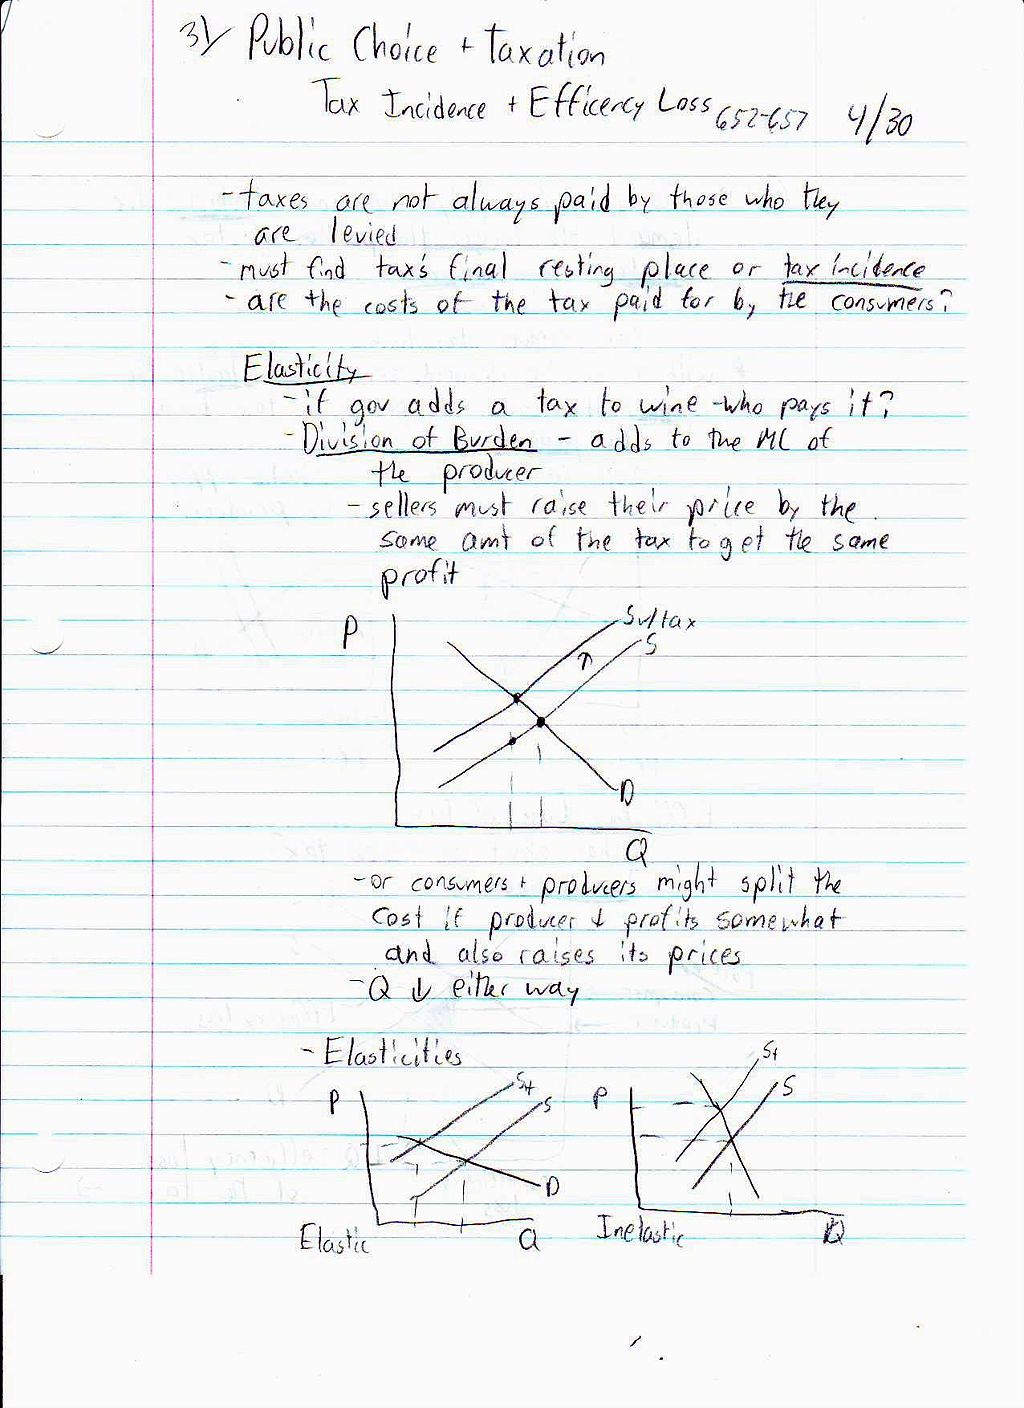 31/ Public Choice + Taxation
Tax Incidence + Efficency Loss 652-657 4/30
- taxes are not always paid by those who they
are levied
- must find tax's final resting place or tax incidence
- are the costs of the tax paid for by the consumers?
Elasticity
- if gov adds a tax to wine - who pays it?
- Division of Burden - adds to the MC of
the producer
- sellers must raise their price by the
same amt of the tax to get the same
profit
P
S w/tax
S
D
Q
- or consumers + producers might split the
cost if producer ↓ profits somewhat
and also raises its prices
- Q ↓ either way
- Elasticities
P St S D Q
P St S D Q
Elastic
Inelastic